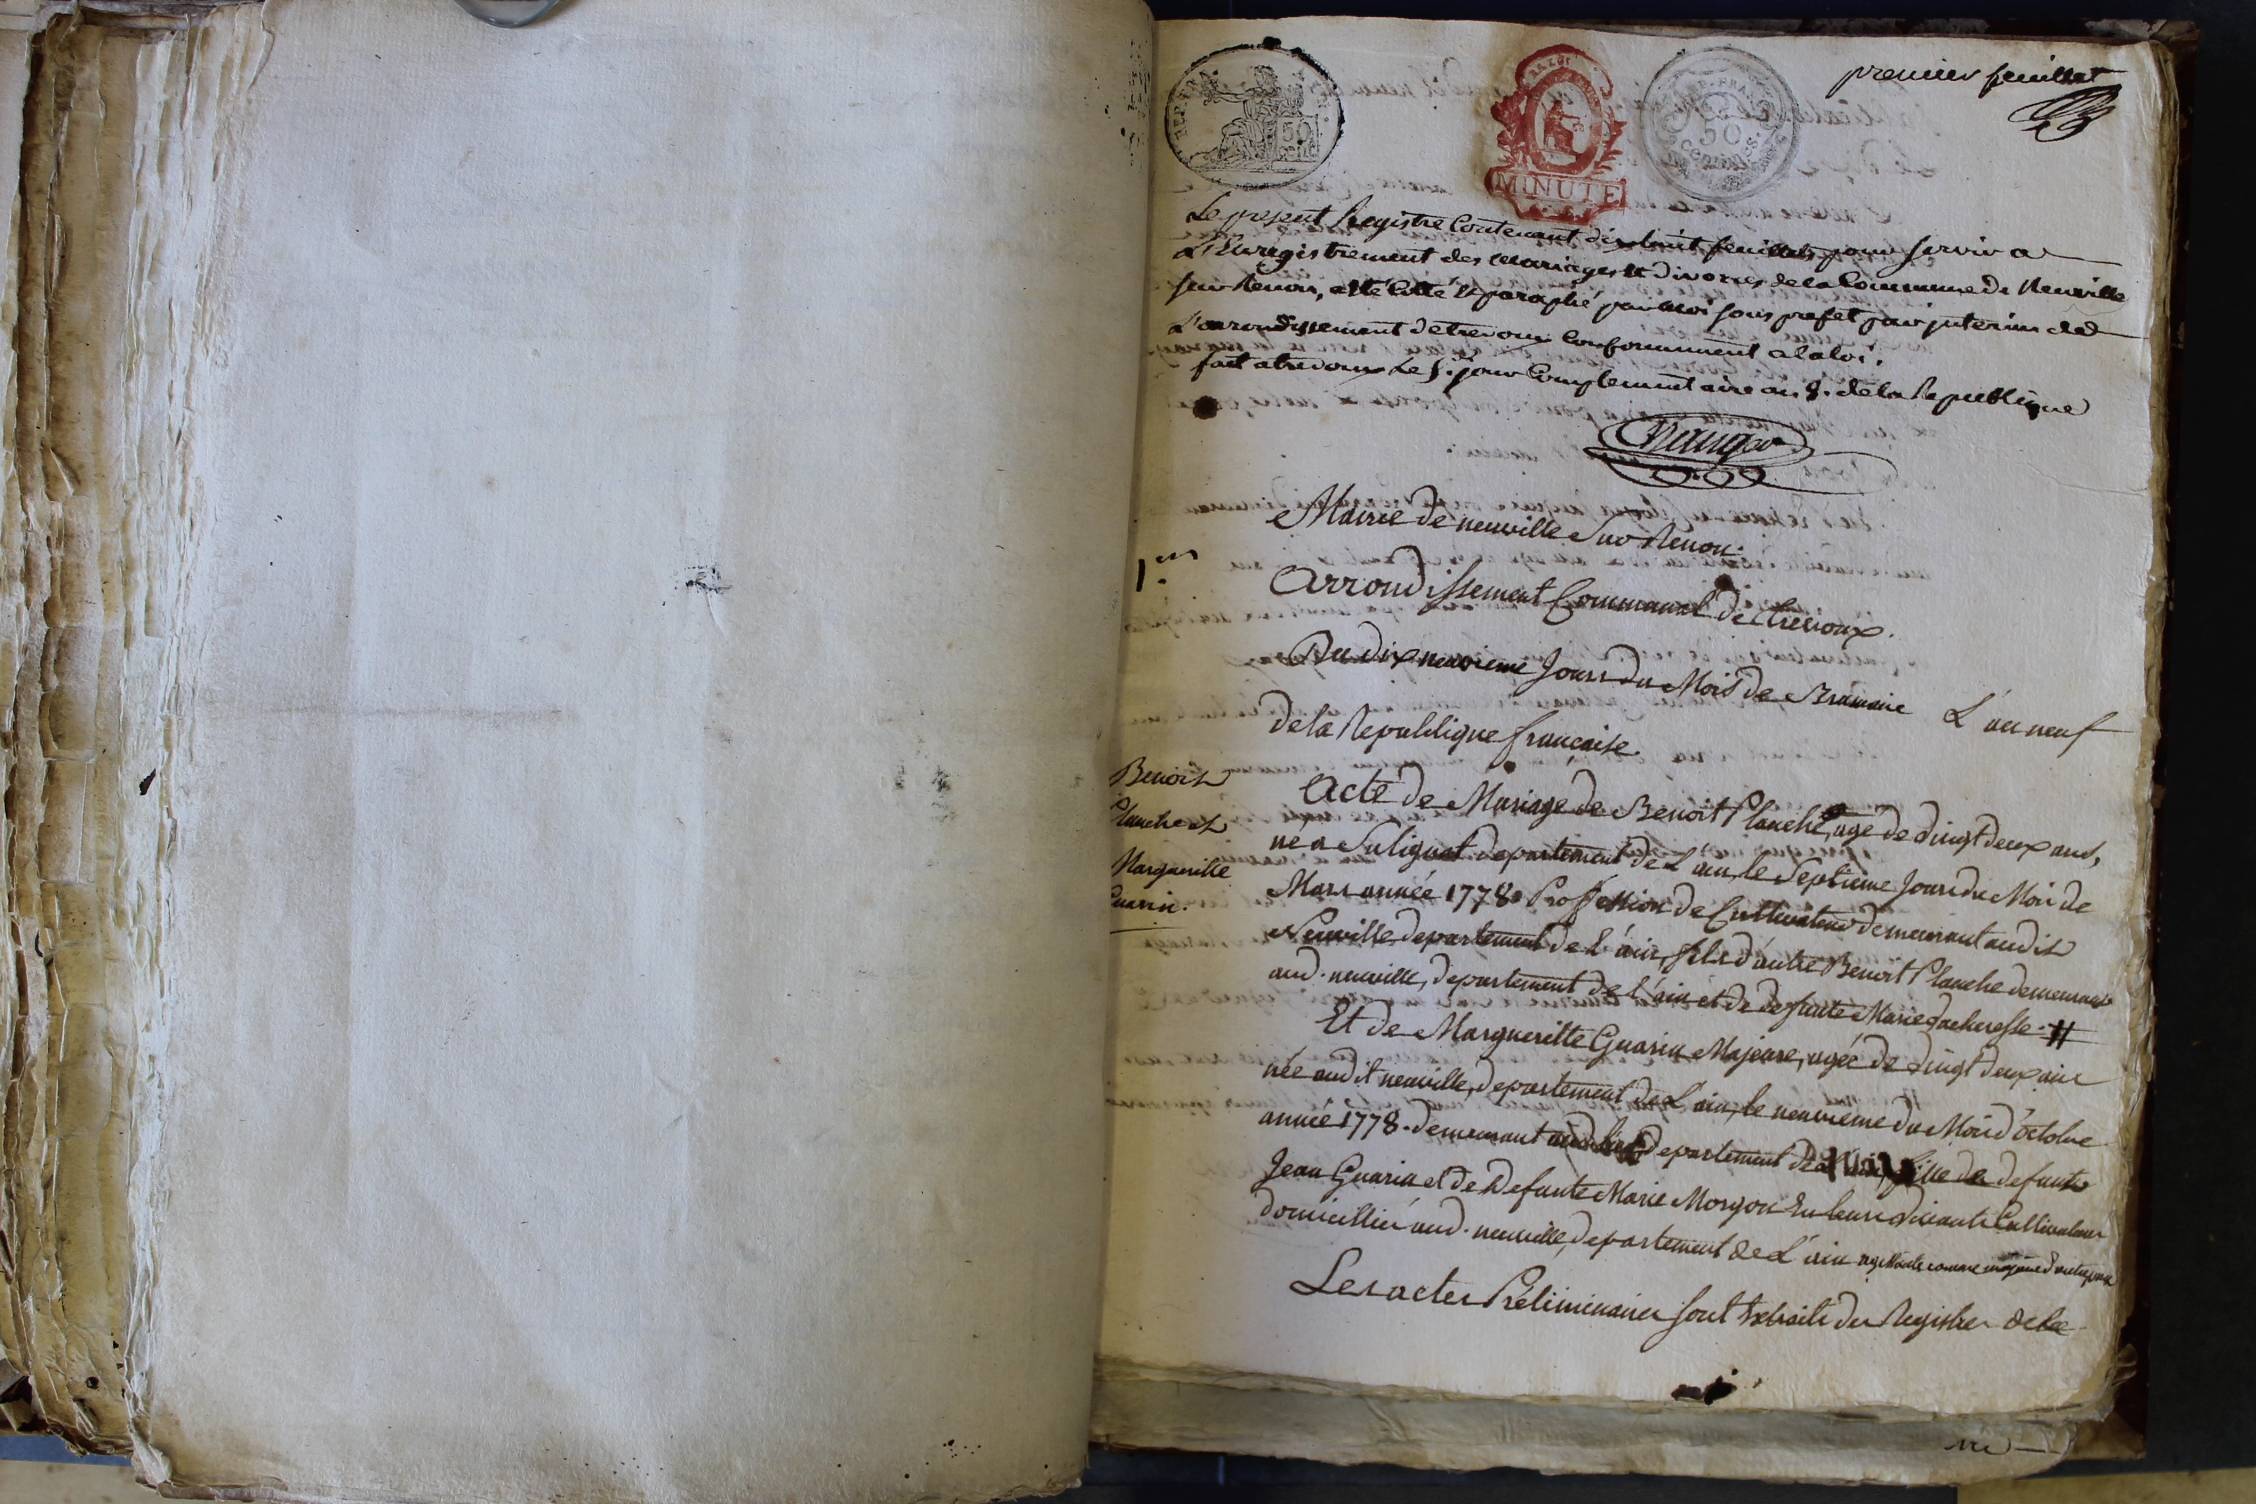 premier feuillet
REP. FRA.
50
MINUTE
50
centimes.
Le present Registre Contenant dix huit feuillets pour servir a
L'Enregistrement des Mariages et divorces de la Commune de Neuville
sur Renon, a été Cotté et paraphé par moi sous prefet par interim de
L'arondissement de trevoux Conformement a la loi.
fait a trevoux Le 5.e jour Complementaire an 8. de la Republique
Mairie de neuville Sur Renon.
1.er
Arrondissement Communal de Trevoux.
Du dix neuvieme Jour du Mois de Brumaire L'an neuf
de la Republique française.
Benoit
Planche et
Margueritte
Guarin.
Acte de Mariage de Benoit Planche, agé de vingt deux ans,
né a Sulignat departement de L'ain, le Septieme Jour du Moi de
Mars année 1778. Profession de Cultivateur demeurant audit
Neuville departement de l'ain, fils d'autre Benoit Planche demeurant
aud. neuville, departement de l'ain et de defunte Marie
Et de Margueritte Guarin Majeure, agée de vingt deux ans
née audit neuville, departement de L'ain, le neuvieme du Moi d'octobre
année 1778. demeurant departement de fille de defunt
Jean Guarin et de defunte Marie Morgon En leurs vivants Cultivateurs
domicilliés aud. neuville, departement de L'ain comme majeure d'autre part
Les actes Préliminaires sont Extraits des Registres de la